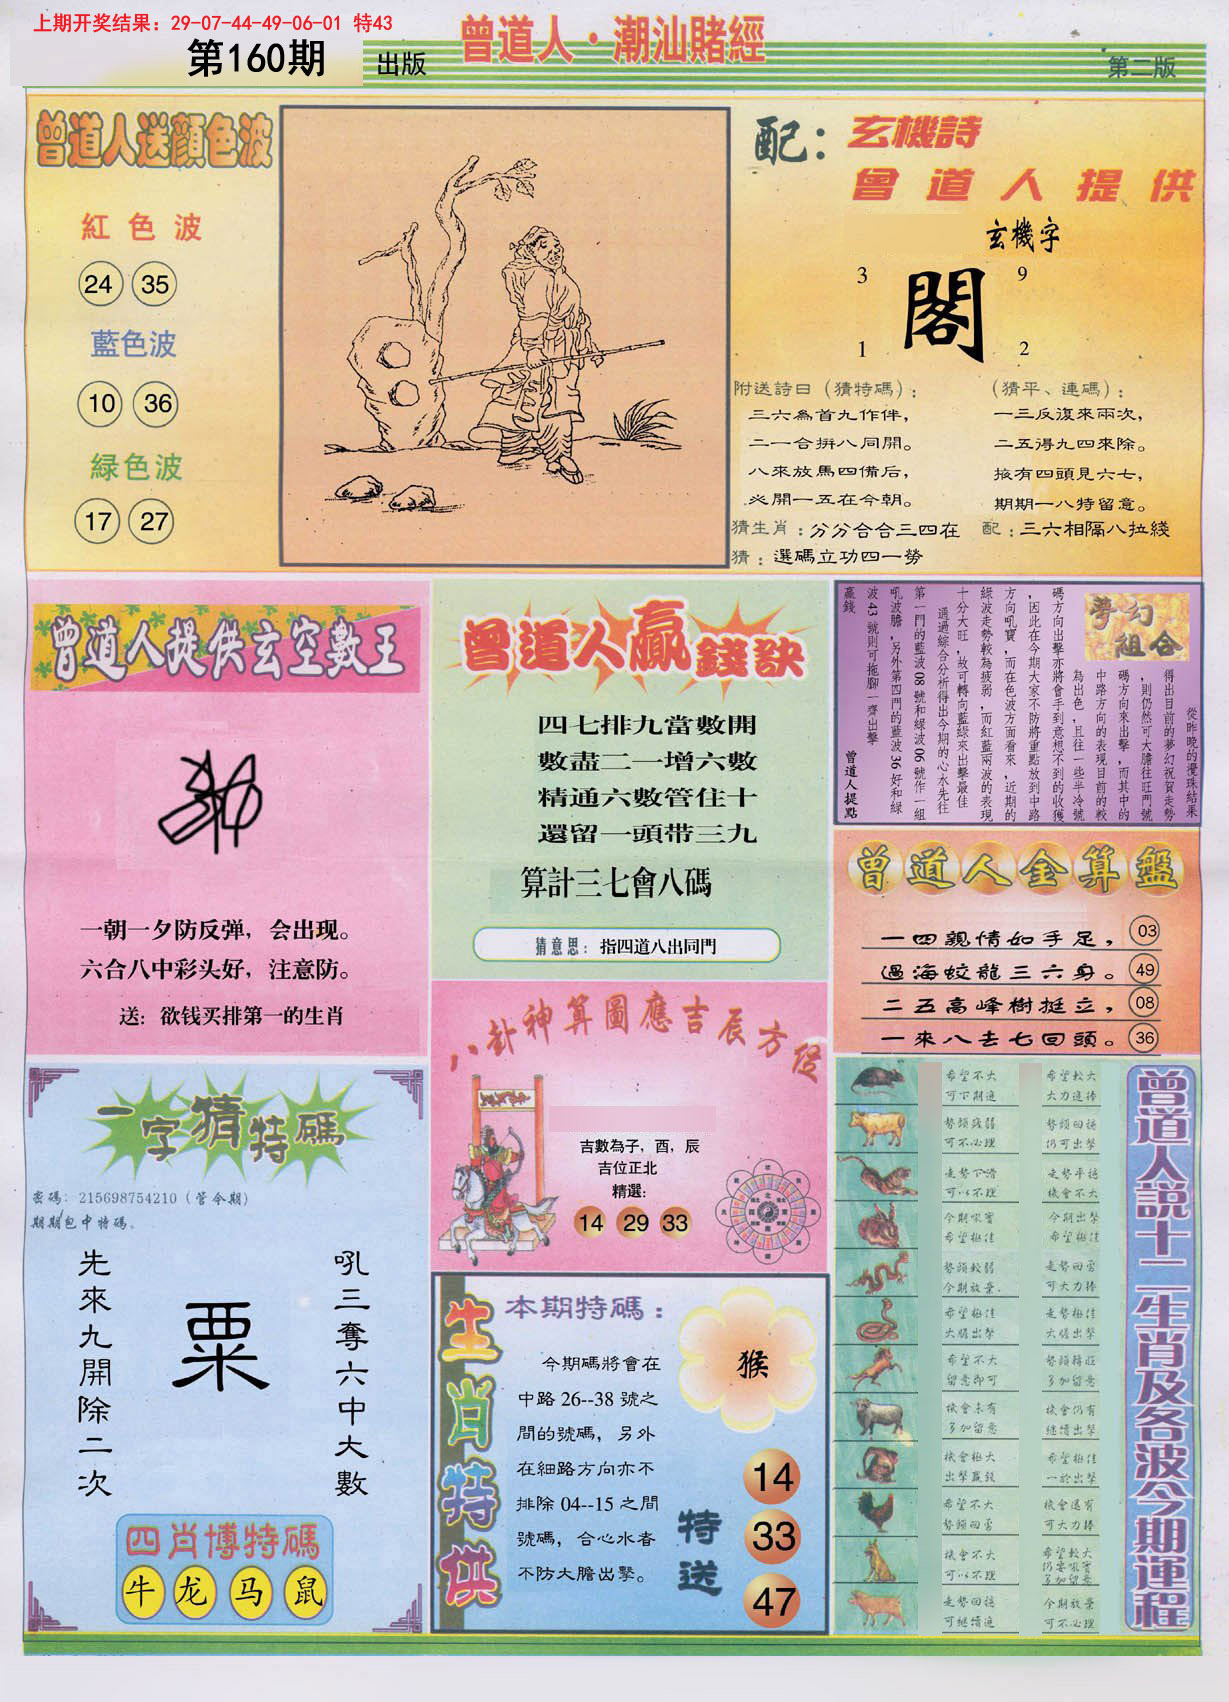 上期开奖结果：29-07-44-49-06-01 特43
第160期
出版
曾道人·潮汕賭經
第二版
曾道人送顏色波
紅色波
24 35
藍色波
10 36
緑色波
17 27
配：玄機詩
曾道人提供
玄機字
3 9
閣
1 2
附送詩曰（猜特碼）：
三六為首九作伴，
二一合拼八同開。
八來放馬四備后，
必開一五在今朝。
（猜平、連碼）：
一三反復來兩次，
二五得九四來除。
撿有四頭見六七，
期期一八特留意。
猜生肖：分分合合三四在
配：三六相隔八拉綫
猜：選碼立功四一勞
曾道人提供玄空數王
一朝一夕防反弹，会出现。
六合八中彩头好，注意防。
送：欲钱买排第一的生肖
曾道人贏錢訣
四七排九當數開
數盡二一增六數
精通六數管住十
還留一頭带三九
算計三七會八碼
猜意思：指四道八出同門
夢幻組合
從昨晚的攪珠結果
得出目前的夢幻祝賀走勢
，則仍然可大膽往旺門號
碼方向來出擊，而其中的
中路方向的表現目前的較
為出色，且往一些半冷號
碼方向出擊亦將會手到意想不到的收獲
，因此在今期大家不防將重點放到中路
方向吼寶，而在色波方面看來，近期的
綠波走勢較為疲弱，而紅藍兩波的表現
十分大旺，故可轉向藍綠來出擊最佳
通過綜合分析得出今期的心水先往
第一門的藍波08號和绿波06號作一組
吼波膽，另外第四門的藍波36好和緑
波43號則可拖腳一齊出擊
贏錢
曾道人提點
曾道人金算盤
一四親情如手足， 03
過海蛟龍三六身。 49
二五高峰樹挺立， 08
一來八去七回頭。 36
八卦神算圖應吉辰方位
吉數為子，酉，辰
吉位正北
精選:
14 29 33
一字猜特碼
密碼：215698754210（管令期）
期期包中特碼。
先來九開除二次
粟
吼三奪六中大數
四肖博特碼
牛 龙 马 鼠
生肖特供
本期特碼：
今期碼將會在
中路26--38號之
間的號碼，另外
在細路方向亦不
排除04--15之間
號碼，合心水者
不防大膽出擊。
猴
特送
14
33
47
曾道人説十二生肖及各波今期運程
希望不大
可下期進
希望較大
大力進捧
勢頭殘弱
可不必理
勢頭回接
仍可出擊
走勢下滑
可以不理
走勢平穩
機會不大
今期吼實
希望極佳
今期出擊
希望極佳
勢頭較弱
今期放棄.
走勢回勇
可大力捧
希望極佳
大膽出擊
走勢極佳
大膽出擊
希望不大
留意即可
勢頭轉旺
多加留意
機會未有
多加留意
機會仍有
繼續出擊
機會極大
出擊贏錢
希望極佳
一於出擊
希望不大
勢頭回勇
機會還有
可大力捧
機會不大
可以不理
希望較大
仍要吼實
多加留意
走勢回接
可繼續進
今期放棄
可不必理